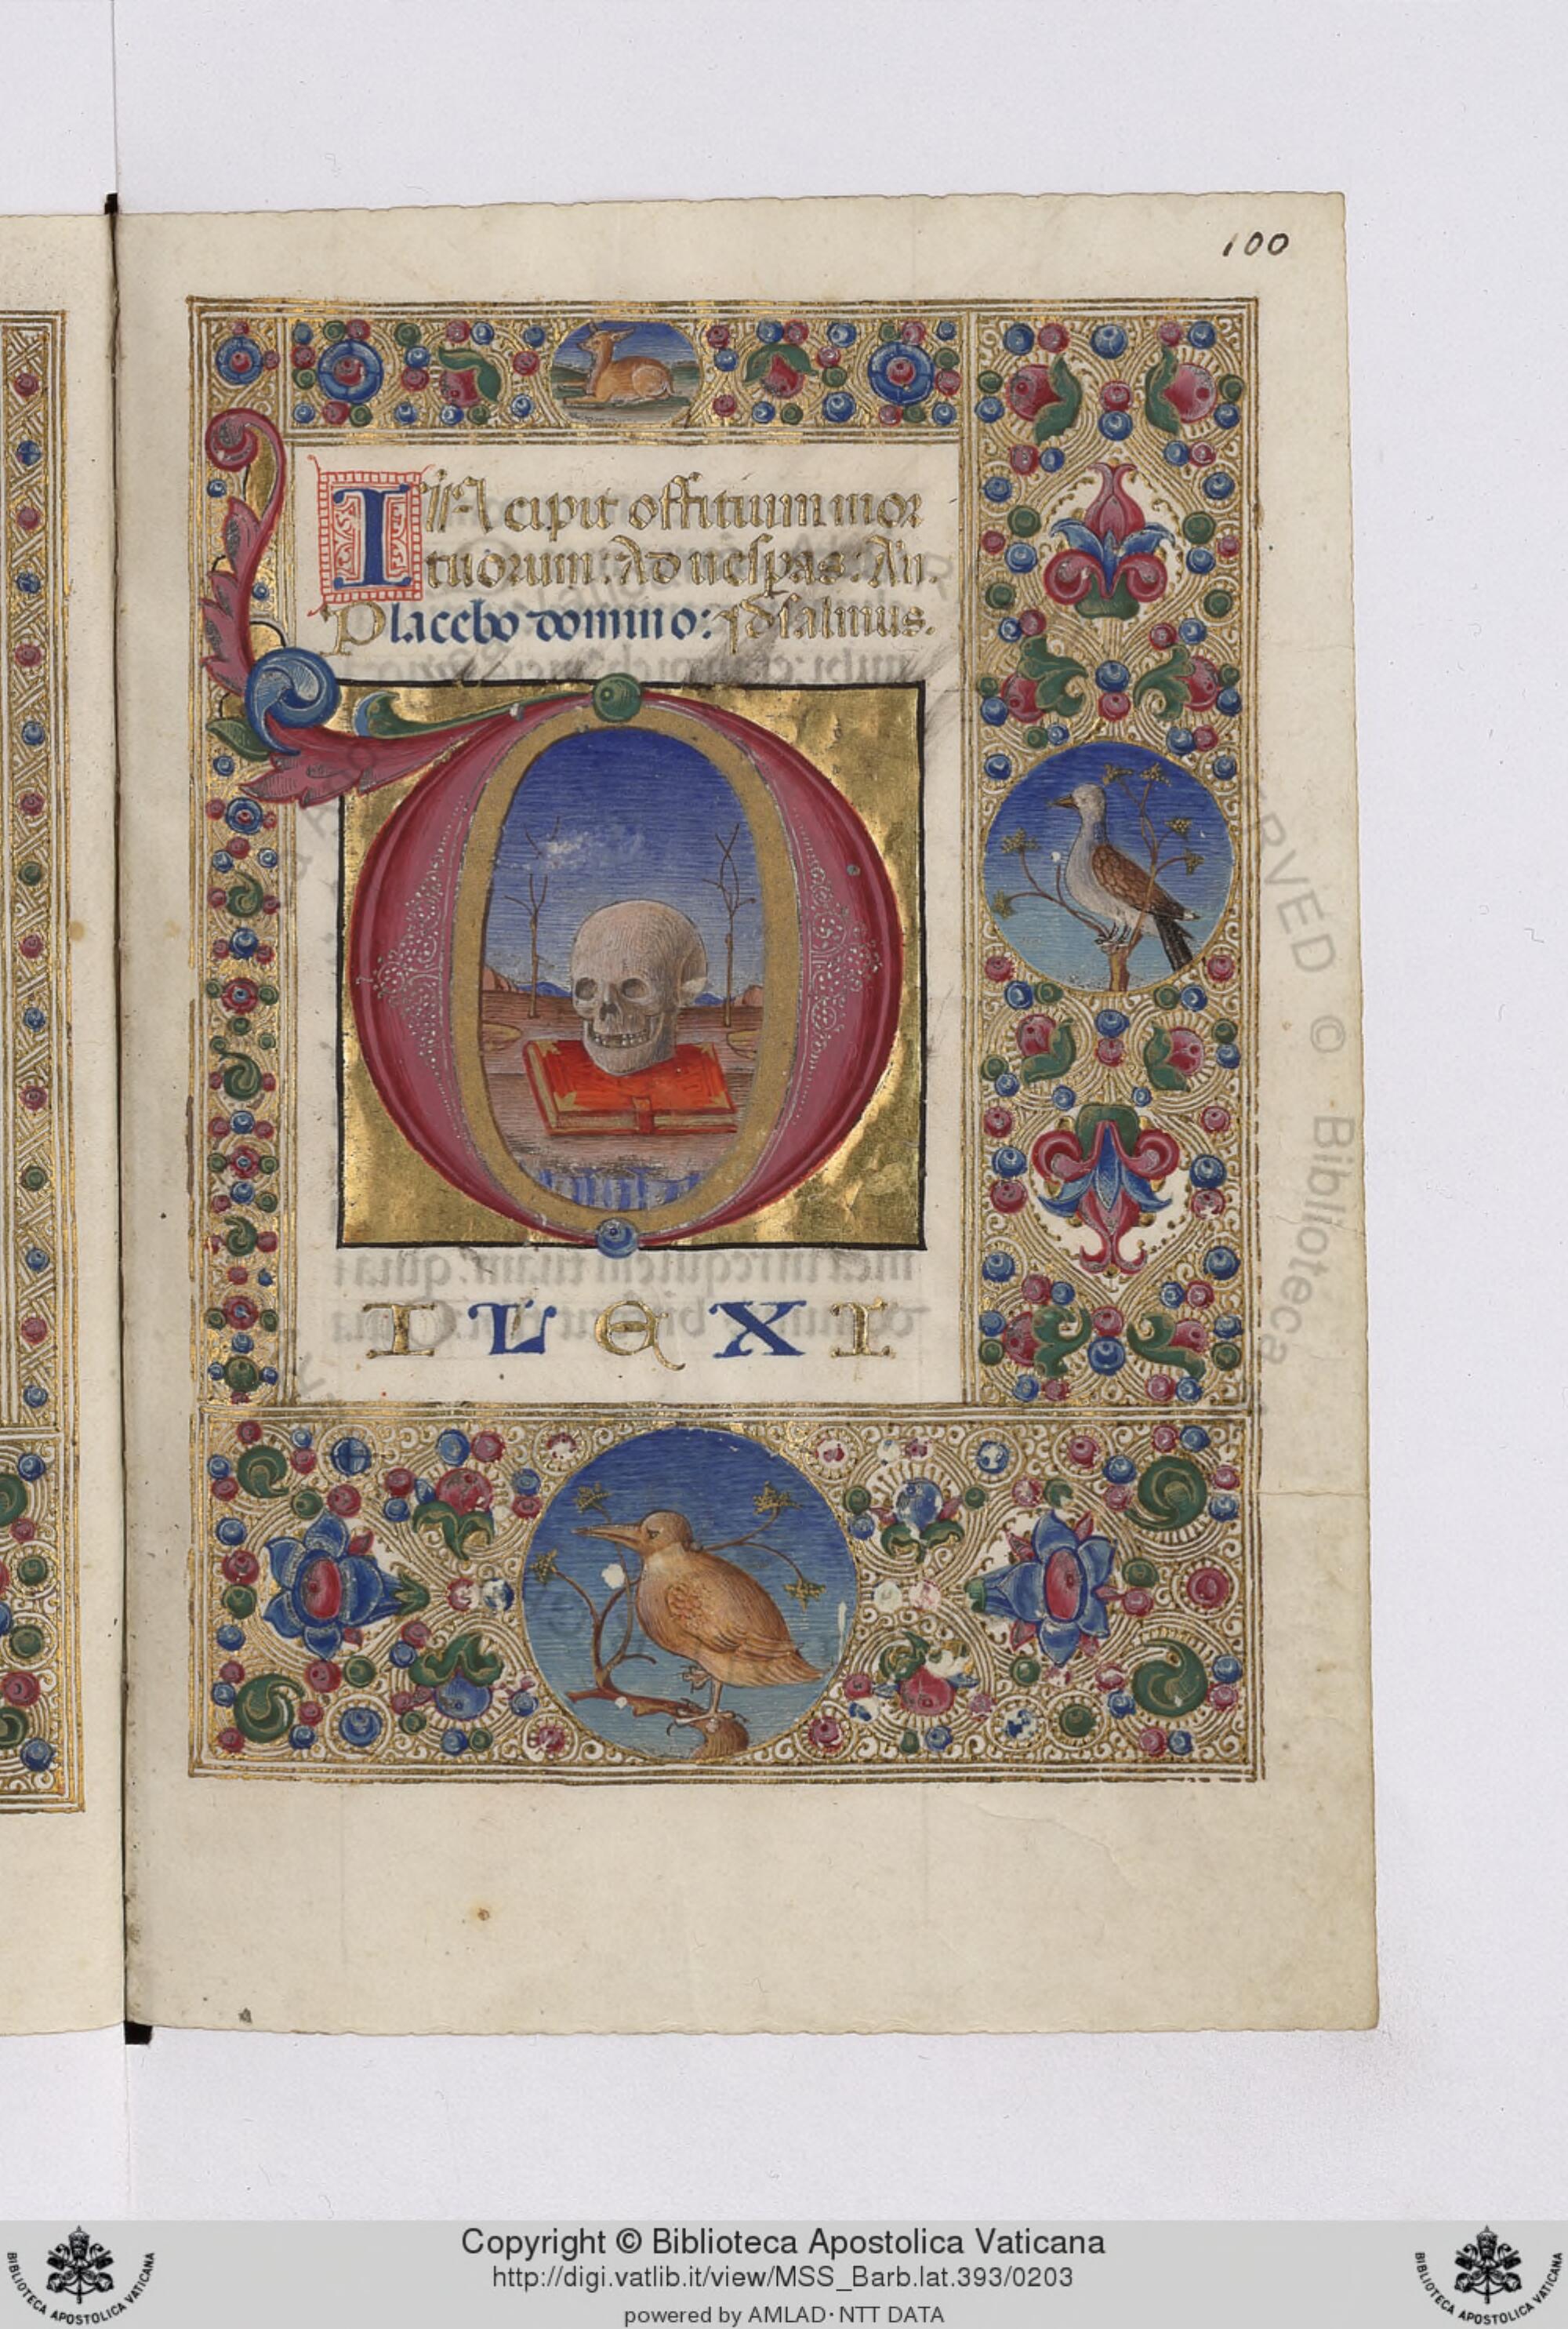 100
INcipit offitium mor
tuorum: Ad uespas: An.
Placebo domino: psalmus.
D
ILEXI
RVED © Biblioteca
Copyright © Biblioteca Apostolica Vaticana
http://digi.vatlib.it/view/MSS_Barb.lat.393/0203
powered by AMLAD·NTT DATA
BIBLIOTECA APOSTOLICA VATICANA
BIBLIOTECA APOSTOLICA VATICANA